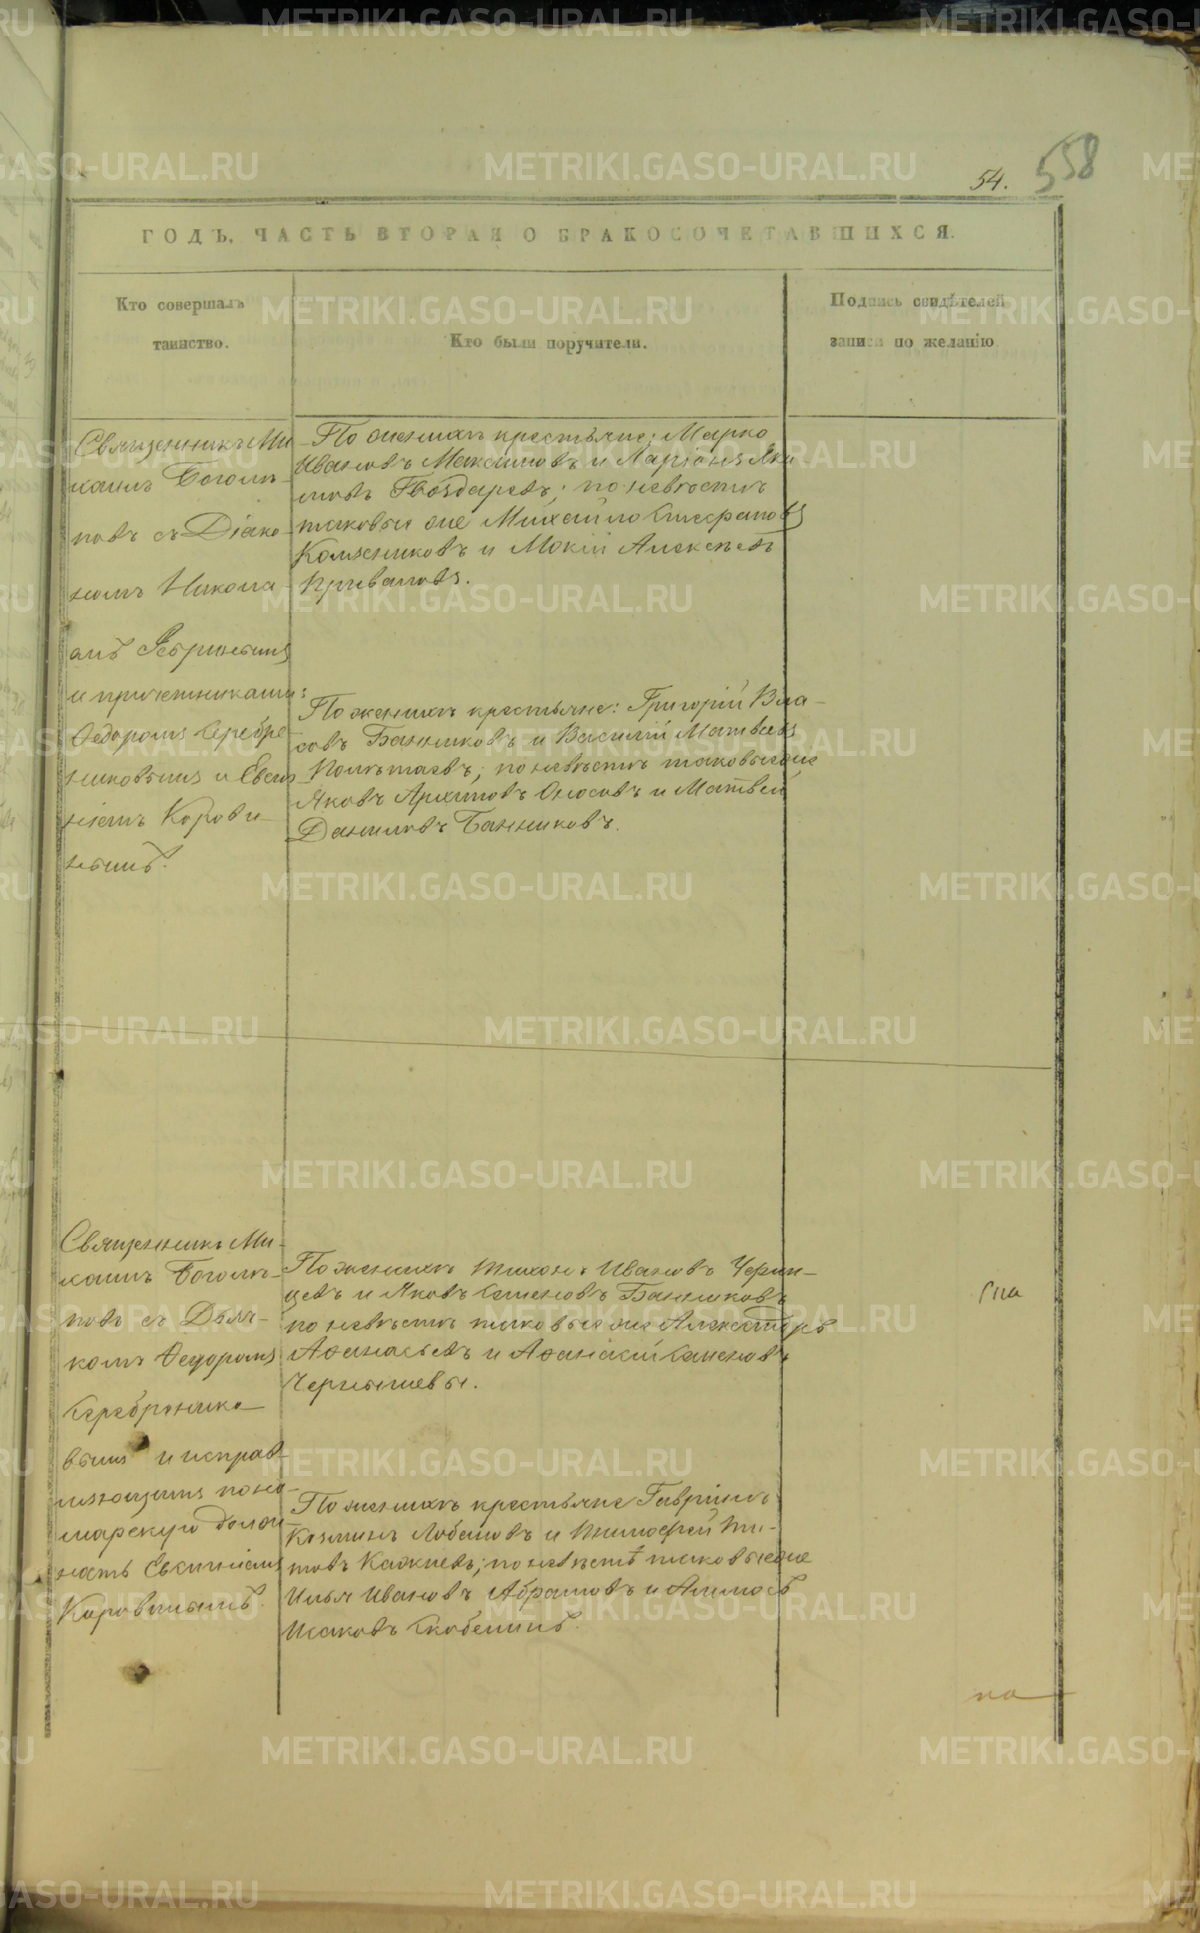 54.
558
ГОДЪ, ЧАСТЬ ВТОРАЯ О БРАКОСОЧЕТАВШИХСЯ.
Кто совершалъ
таинство.
Кто были поручители.
Подпись свидѣтелей
записи по желанію
Священникъ Ми-
хаилъ Боголѣ-
повъ съ Діако-
номъ Никола-
емъ
и причетниками:
Федоромъ Серебре-
никовымъ и Евсиг-
ніемъ Корови-
нымъ.
По женихѣ крестьяне: Марко
Ивановъ Максимовъ и Ларіонъ Яки-
мовъ Гвоздаревъ; по невѣстѣ
таковые же Михайло
и Мокій Алексѣевъ
Приваловъ.
По женихѣ крестьяне: Григорій Вла-
совъ Банниковъ и Василій Матвеевъ
Полѣтаевъ; по невѣстѣ таковые же
Яковъ Архиповъ Оносовъ и Матвей
Даниловъ Банниковъ.
Священникъ Ми-
хаилъ Боголѣ-
повъ съ Дьяч-
комъ Федоромъ
Серебренико-
вымъ и исправ-
ляющимъ поно-
марскую долж-
ность Евсигніемъ
Коровинымъ.
По женихѣ Тихонъ Ивановъ Черни-
цевъ и Яковъ Семеновъ Банниковъ
по невѣстѣ таковые же Александръ
Афанасьевъ и Афанасій Семеновъ
Чернышевы.
По женихѣ крестьяне Гаврiилъ
Козминъ Лобановъ и Тимофей Ти-
товъ; по невѣстѣ таковые же
Илья Ивановъ Абрамовъ и
Исаковъ Скобелинъ.
METRIKI.GASO-URAL.RU